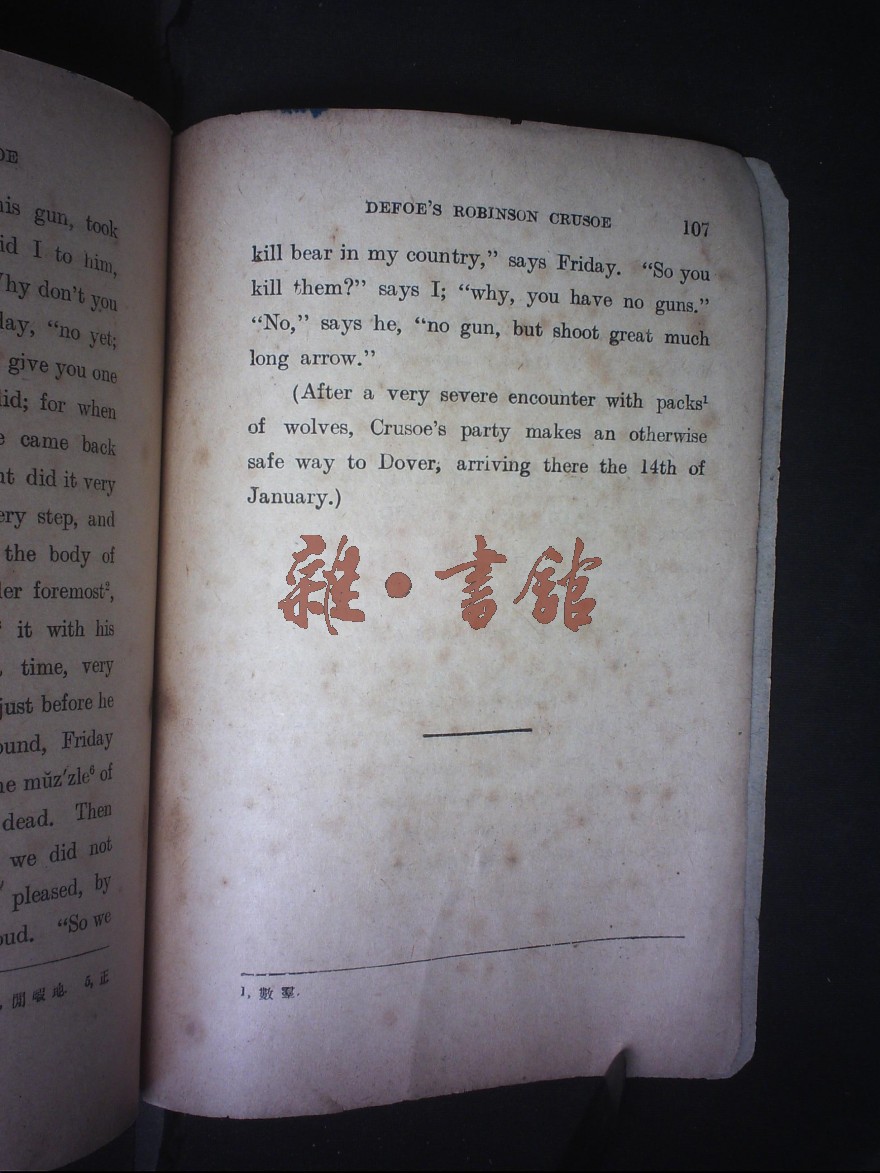 OE
his gun, took
I to him,
Why don't you
"no yet;
give you one
did; for when
came back
did it very
step, and
the body of
foremost²,
it with his
time, very
just before he
Friday
mŭz′zle⁶ of
dead. Then
we did not
pleased, by
"So we
閒暇地. 5, 正
DEFOE'S ROBINSON CRUSOE 107
kill bear in my country," says Friday. "So you
kill them?" says I; "why, you have no guns."
"No," says he, "no gun, but shoot great much
long arrow."
(After a very severe encounter with packs¹
of wolves, Crusoe's party makes an otherwise
safe way to Dover, arriving there the 14th of
January.)
雜·書館
1, 數羣.